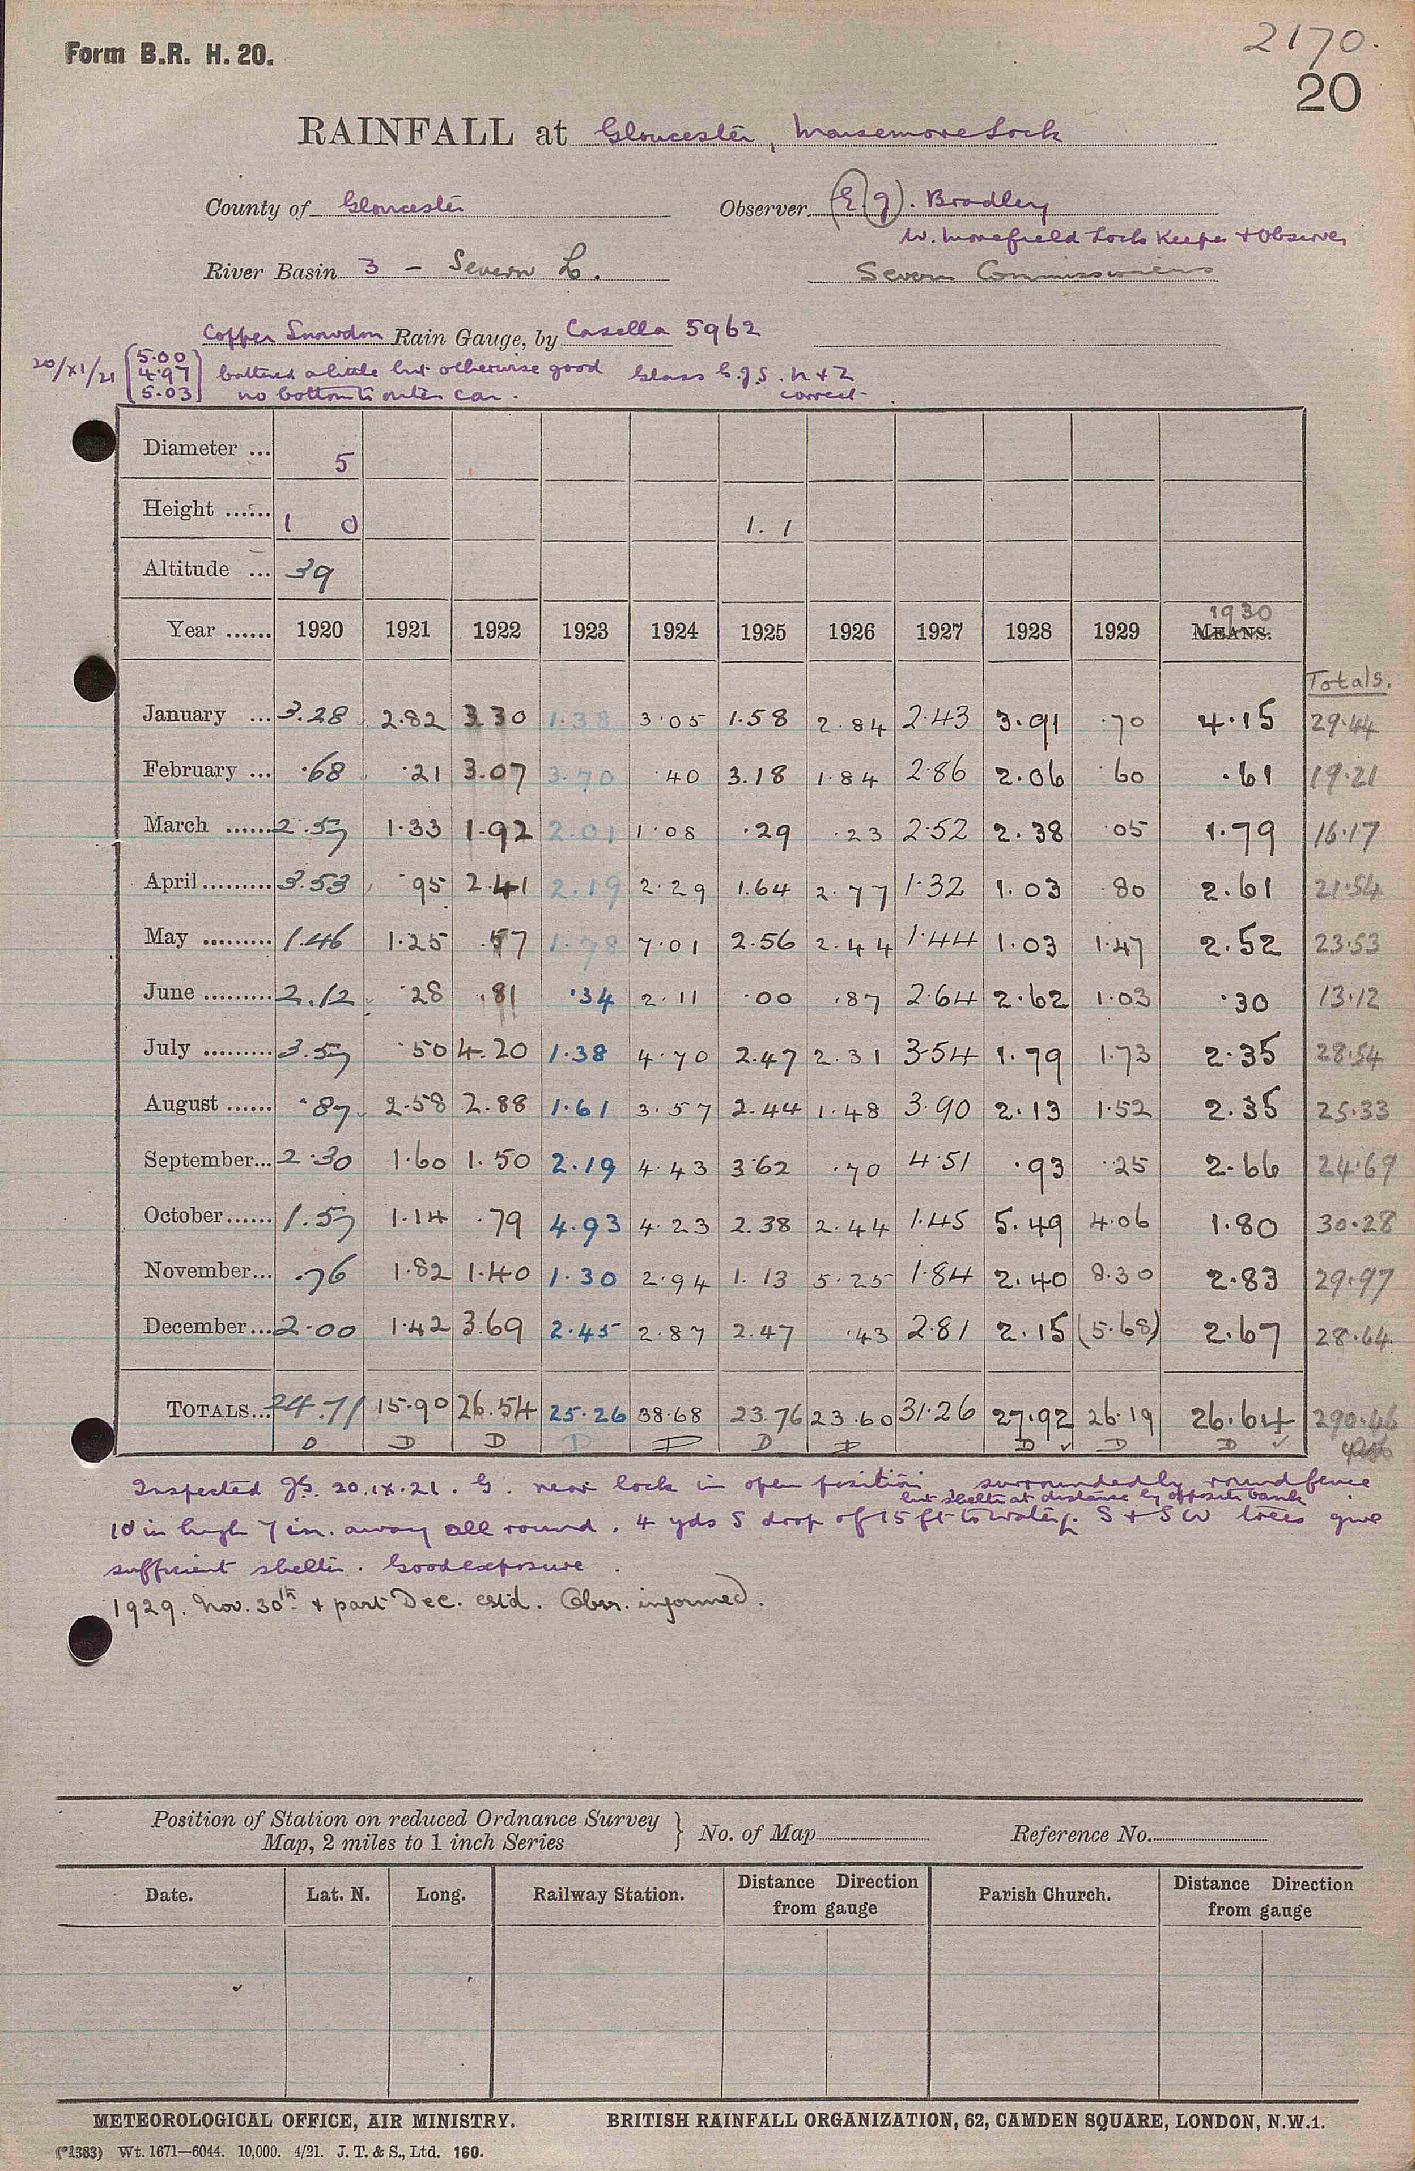 Form B.R. H. 20.
2170.
20
RAINFALL at Gloucester, Maisemore Lock
County of Gloucester Observer (E.J). Bradley
W. Morefield Lock Keeper + Observer
River Basin 3 – Severn L. Severn Commissioners
Copper Snowdon Rain Gauge, by Casella 5962
20/XI/21 5.00 4.97 5.03 battered a little but otherwise good Glass correct
no bottom to outer can.
Diameter ... 5
Height ...... 1 0 1.1
Altitude ... 39
Year ...... 1920 1921 1922 1923 1924 1925 1926 1927 1928 1929 MEANS. 1930
Totals.
January ... 3.28 2.82 3.30 1.38 3.05 1.58 2.84 2.43 3.91 .70 4.15 29.44
February ... .68 .21 3.07 3.70 .40 3.18 1.84 2.86 2.06 .60 .61 19.21
March ...... 2.57 1.33 1.92 2.01 1.08 .29 .23 2.52 2.38 .05 1.79 16.17
April ......... 3.53 .95 2.41 2.19 2.29 1.64 2.77 1.32 1.03 .80 2.61 21.54
May ......... 1.46 1.25 .57 1.78 7.01 2.56 2.44 1.44 1.03 1.47 2.52 23.53
June ......... 2.12 .28 .81 .34 2.11 .00 .87 2.64 2.62 1.03 .30 13.12
July ......... 3.57 .50 4.20 1.38 4.70 2.47 2.31 3.54 1.79 1.73 2.35 28.54
August ...... .87 2.58 2.88 1.61 3.57 2.44 1.48 3.90 2.13 1.52 2.35 25.33
September... 2.30 1.60 1.50 2.19 4.43 3.62 .70 4.51 .93 .25 2.66 24.69
October...... 1.57 1.14 .79 4.93 4.23 2.38 2.44 1.45 5.49 4.06 1.80 30.28
November... .76 1.82 1.40 1.30 2.94 1.13 5.25 1.84 2.40 8.30 2.83 29.97
December... 2.00 1.42 3.69 2.45 2.87 2.47 .43 2.81 2.15 (5.68) 2.67 28.64
TOTALS... 24.71 15.90 26.54 25.26 38.68 23.76 23.60 31.26 27.92 26.19 26.64 290.46
D D D D D D D D ✓ D D ✓
Inspected JS. 20.IX.21. G. near lock in open position surrounded by round fence
but shelter at distance by opposite bank
10 in high 7 in. away all round. 4 yds S drop of 15 ft to water. S + SW trees give
sufficient shelter. Good exposure.
1929. Nov. 30th + part Dec. est'd. Obsr. informed.
Position of Station on reduced Ordnance Survey
Map, 2 miles to 1 inch Series } No. of Map Reference No.
Date. Lat. N. Long. Railway Station. Distance Direction from gauge Parish Church. Distance Direction from gauge
METEOROLOGICAL OFFICE, AIR MINISTRY. BRITISH RAINFALL ORGANIZATION, 62, CAMDEN SQUARE, LONDON, N.W.1.
(*1383) Wt. 1671—6044. 10,000. 4/21. J. T. & S., Ltd. 160.